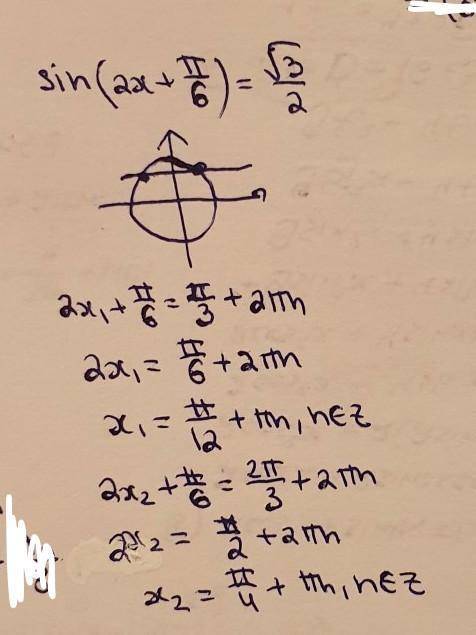 sin(2x+π/6)=√3/2
2x₁+π/6=π/3+2πn
2x₁=π/6+2πn
x₁=π/12+πn, n∈Z
2x₂+π/6=2π/3+2πn
2x₂=π/2+2πn
x₂=π/4+πn, n∈Z